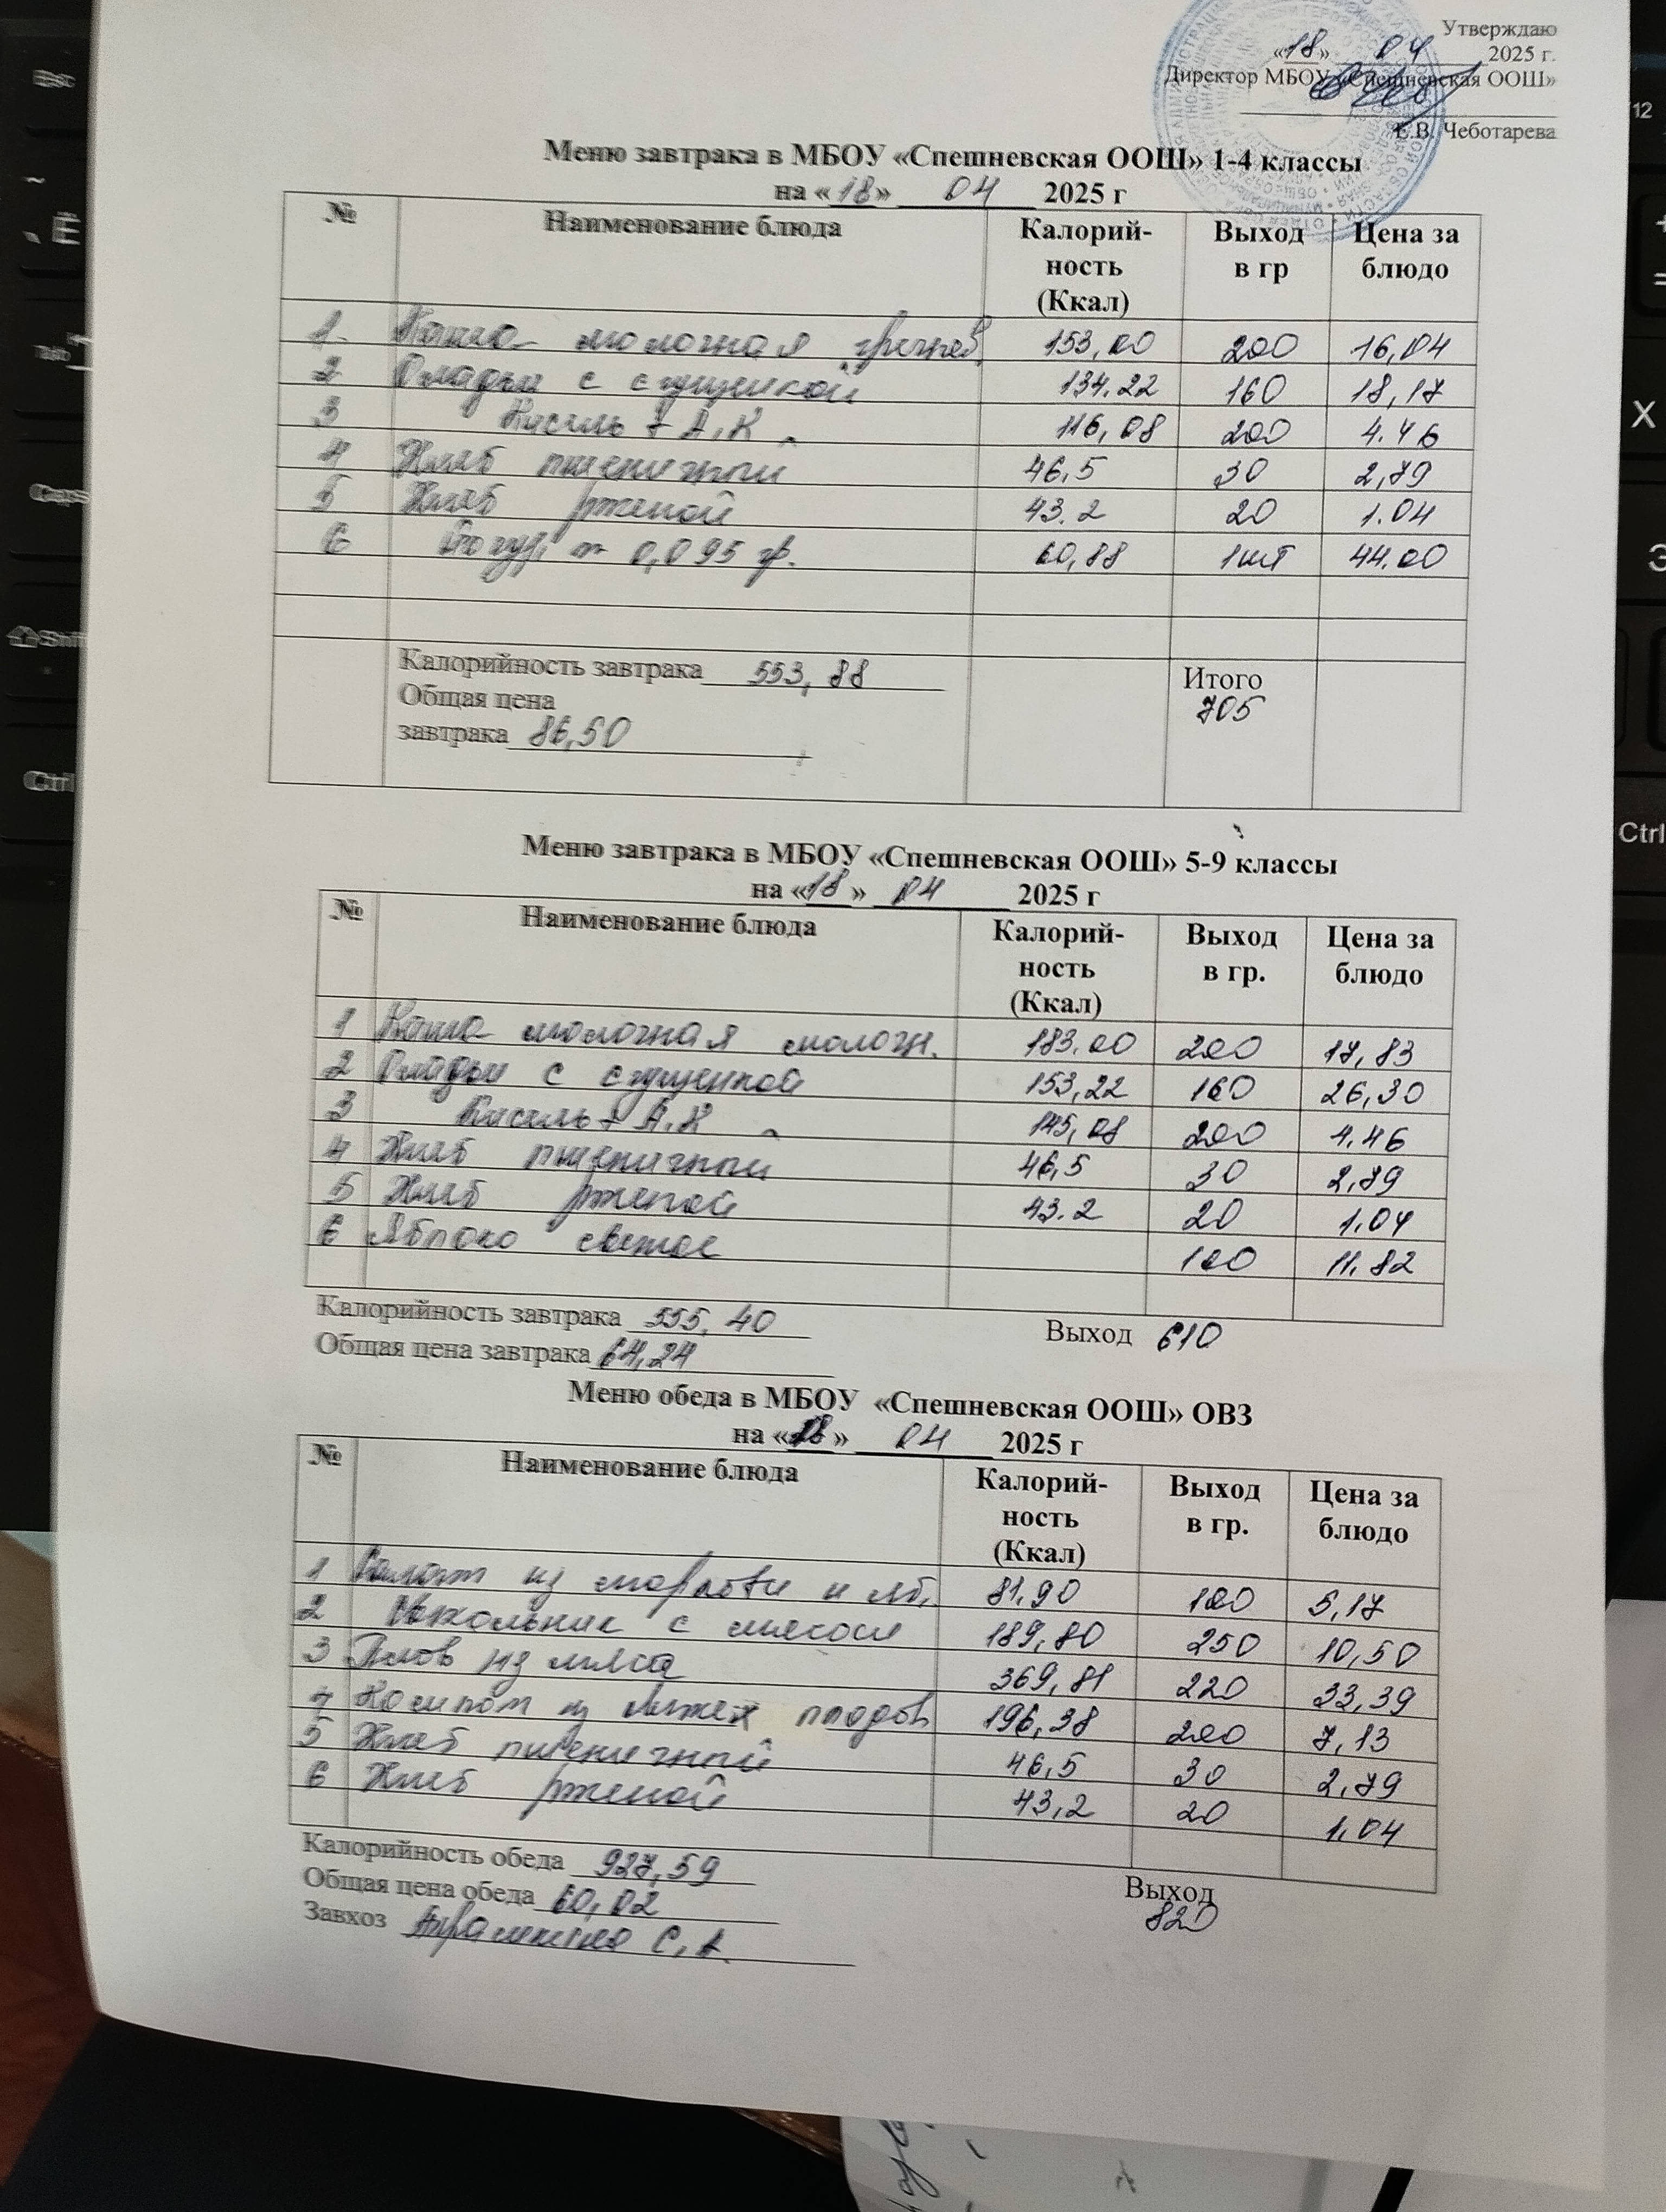 Утверждаю
«18» 04 2025 г.
Директор МБОУ «Спешневская ООШ»
Е.В. Чеботарева
Меню завтрака в МБОУ «Спешневская ООШ» 1-4 классы
на «18» 04 2025 г
№ Наименование блюда Калорий-ность (Ккал) Выход в гр Цена за блюдо
1. Каша молочная гречнев. 153,00 200 16,04
2 Оладьи с сгущенкой 134.22 160 18,17
3 Кисель + А.К 116,08 200 4.46
4 Хлеб пшеничный 46,5 30 2,79
5 Хлеб ржаной 43.2 20 1.04
6 0,095 гр. 60,88 1шт 44.00
Калорийность завтрака 553,88 Итого
Общая цена 705
завтрака 86,50
Меню завтрака в МБОУ «Спешневская ООШ» 5-9 классы
на «18» 04 2025 г
№ Наименование блюда Калорий-ность (Ккал) Выход в гр. Цена за блюдо
1 Каша молочная молочн. 183.00 200 17,83
2 Оладьи с сгущенкой 153,22 160 26,30
3 Кисель + А.К 145,08 200 4.46
4 Хлеб пшеничный 46,5 30 2,79
5 Хлеб ржаной 43.2 20 1.04
6 Яблоко свежее 100 11.82
Калорийность завтрака 555,40 Выход 610
Общая цена завтрака 64,24
Меню обеда в МБОУ «Спешневская ООШ» ОВЗ
на «18» 04 2025 г
№ Наименование блюда Калорий-ность (Ккал) Выход в гр. Цена за блюдо
1 Салат из моркови и яб. 81,90 100 5,17
2 с мясом 189,80 250 10,50
3 Плов из мяса 369,81 220 33,39
4 Компот из свежих плодов 196,38 200 7,13
5 Хлеб пшеничный 46,5 30 2,79
6 Хлеб ржаной 43,2 20 1.04
Калорийность обеда 927,59 Выход
Общая цена обеда 60,02 820
Завхоз С.А.